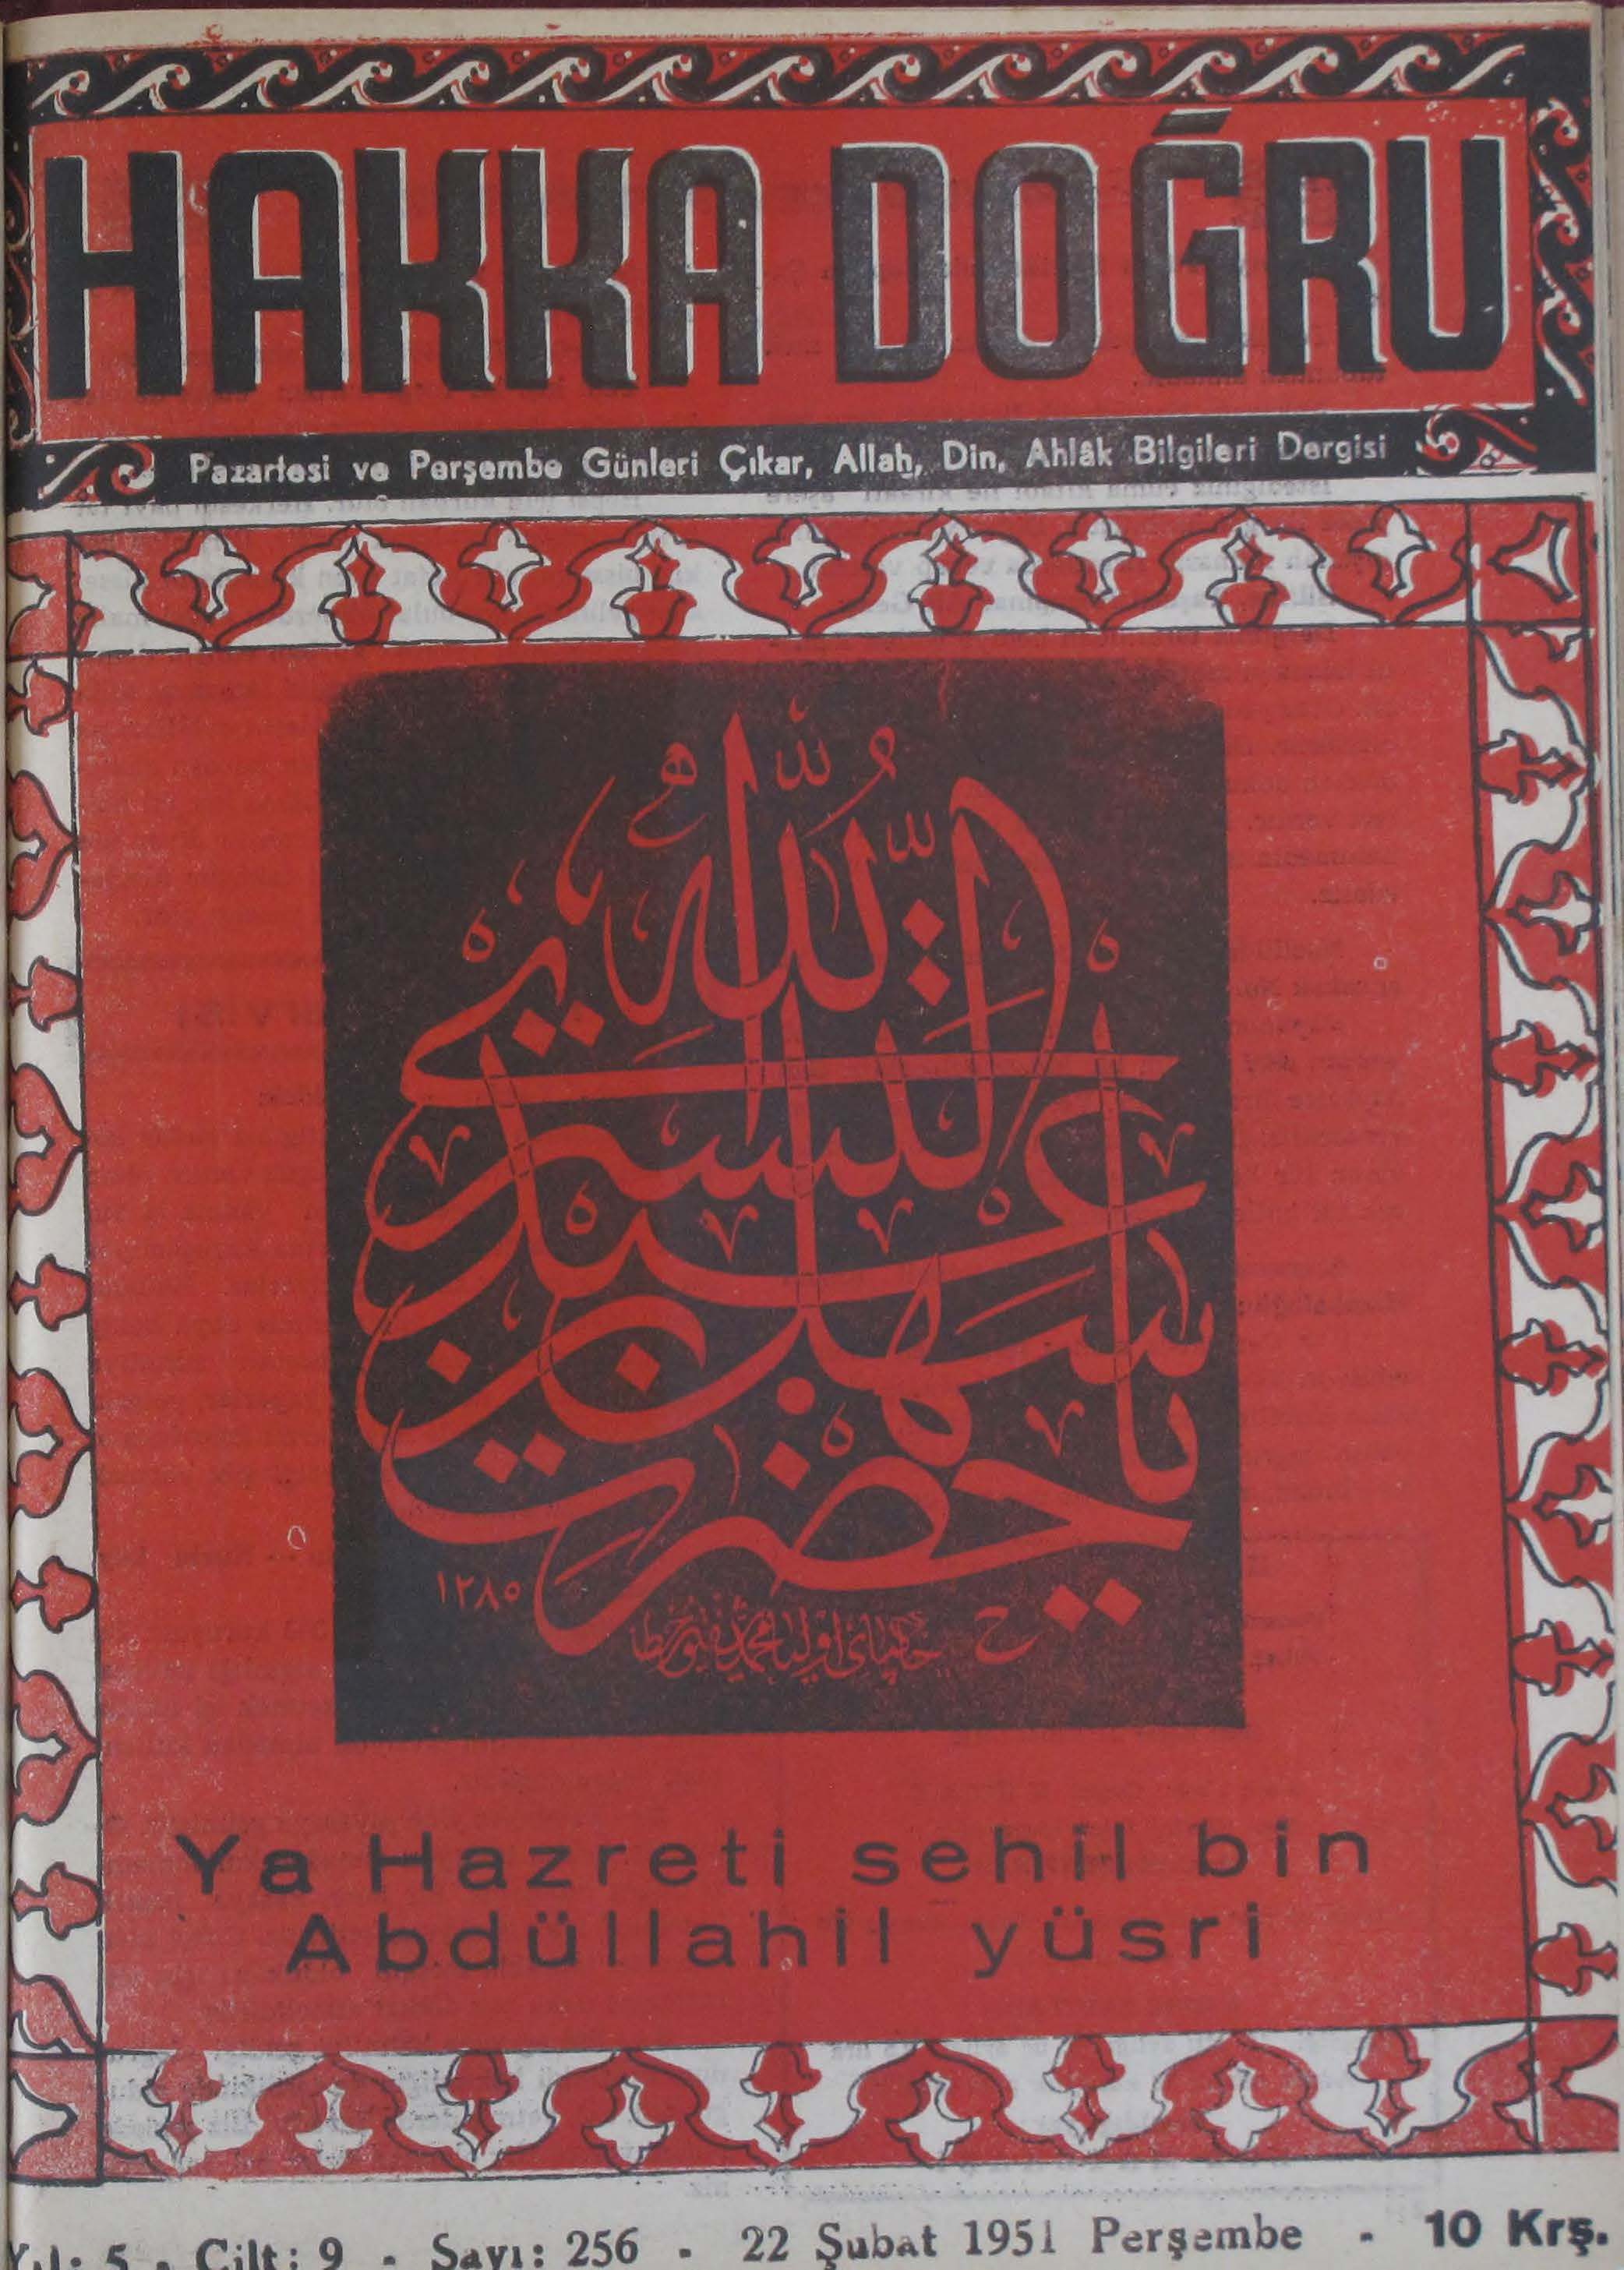 HAKKA DOĞRU
Pazartesi ve Perşembe Günleri Çıkar, Allah, Din, Ahlâk Bilgileri Dergisi
يا حضرت سهل بن عبد الله التستري
١٢٨٥
Ya Hazreti sehil bin
Abdüllahil yüsri
Yıl: 5 - Cilt: 9 - Sayı: 256 - 22 Şubat 1951 Perşembe - 10 Krş.